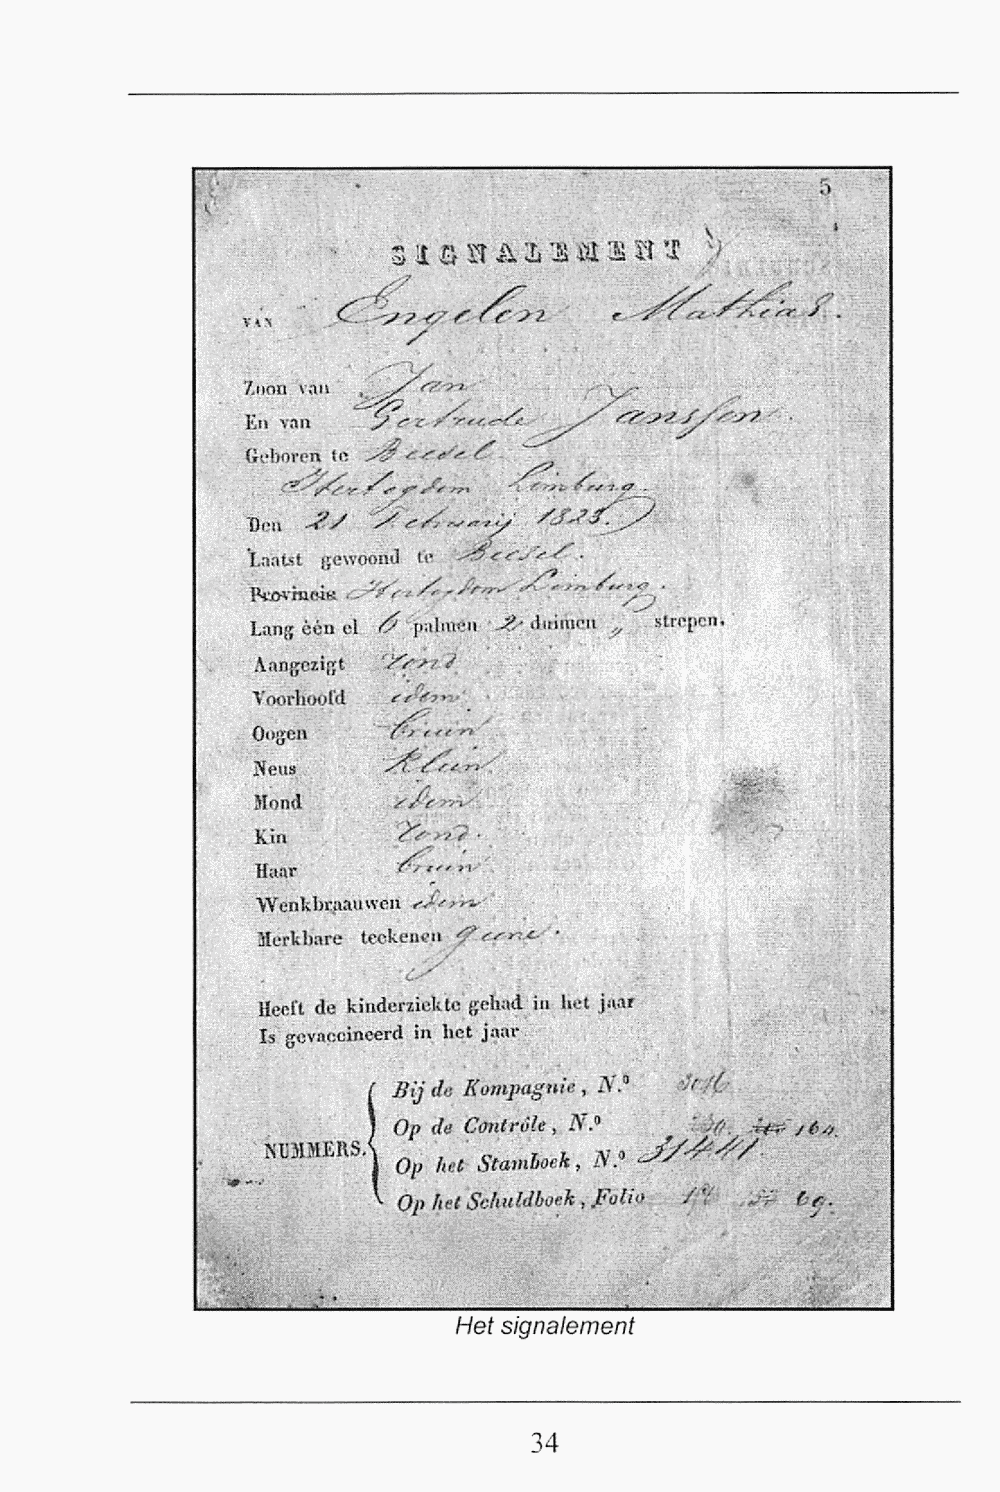 5
SIGNALEMENT
VAN Engelen Mathias.
Zoon van Jan
En van Gertrude Janssen.
Geboren te Beesel.
Hertogdom Limburg.
Den 21 Februarij 1823.
Laatst gewoond te Beesel.
Provincie Hertogdom Limburg.
Lang één el 6 palmen 2 duimen „ strepen.
Aangezigt rond
Voorhoofd idem
Oogen bruin
Neus klein
Mond idem
Kin rond.
Haar bruin
Wenkbraauwen idem
Merkbare teekenen geene.
Heeft de kinderziekte gehad in het jaar
Is gevaccineerd in het jaar
NUMMERS.
Bij de Kompagnie, N.º
Op de Contrôle, N.º 164.
Op het Stamboek, N.º 31441.
Op het Schuldboek, Folio 69.
Het signalement
34